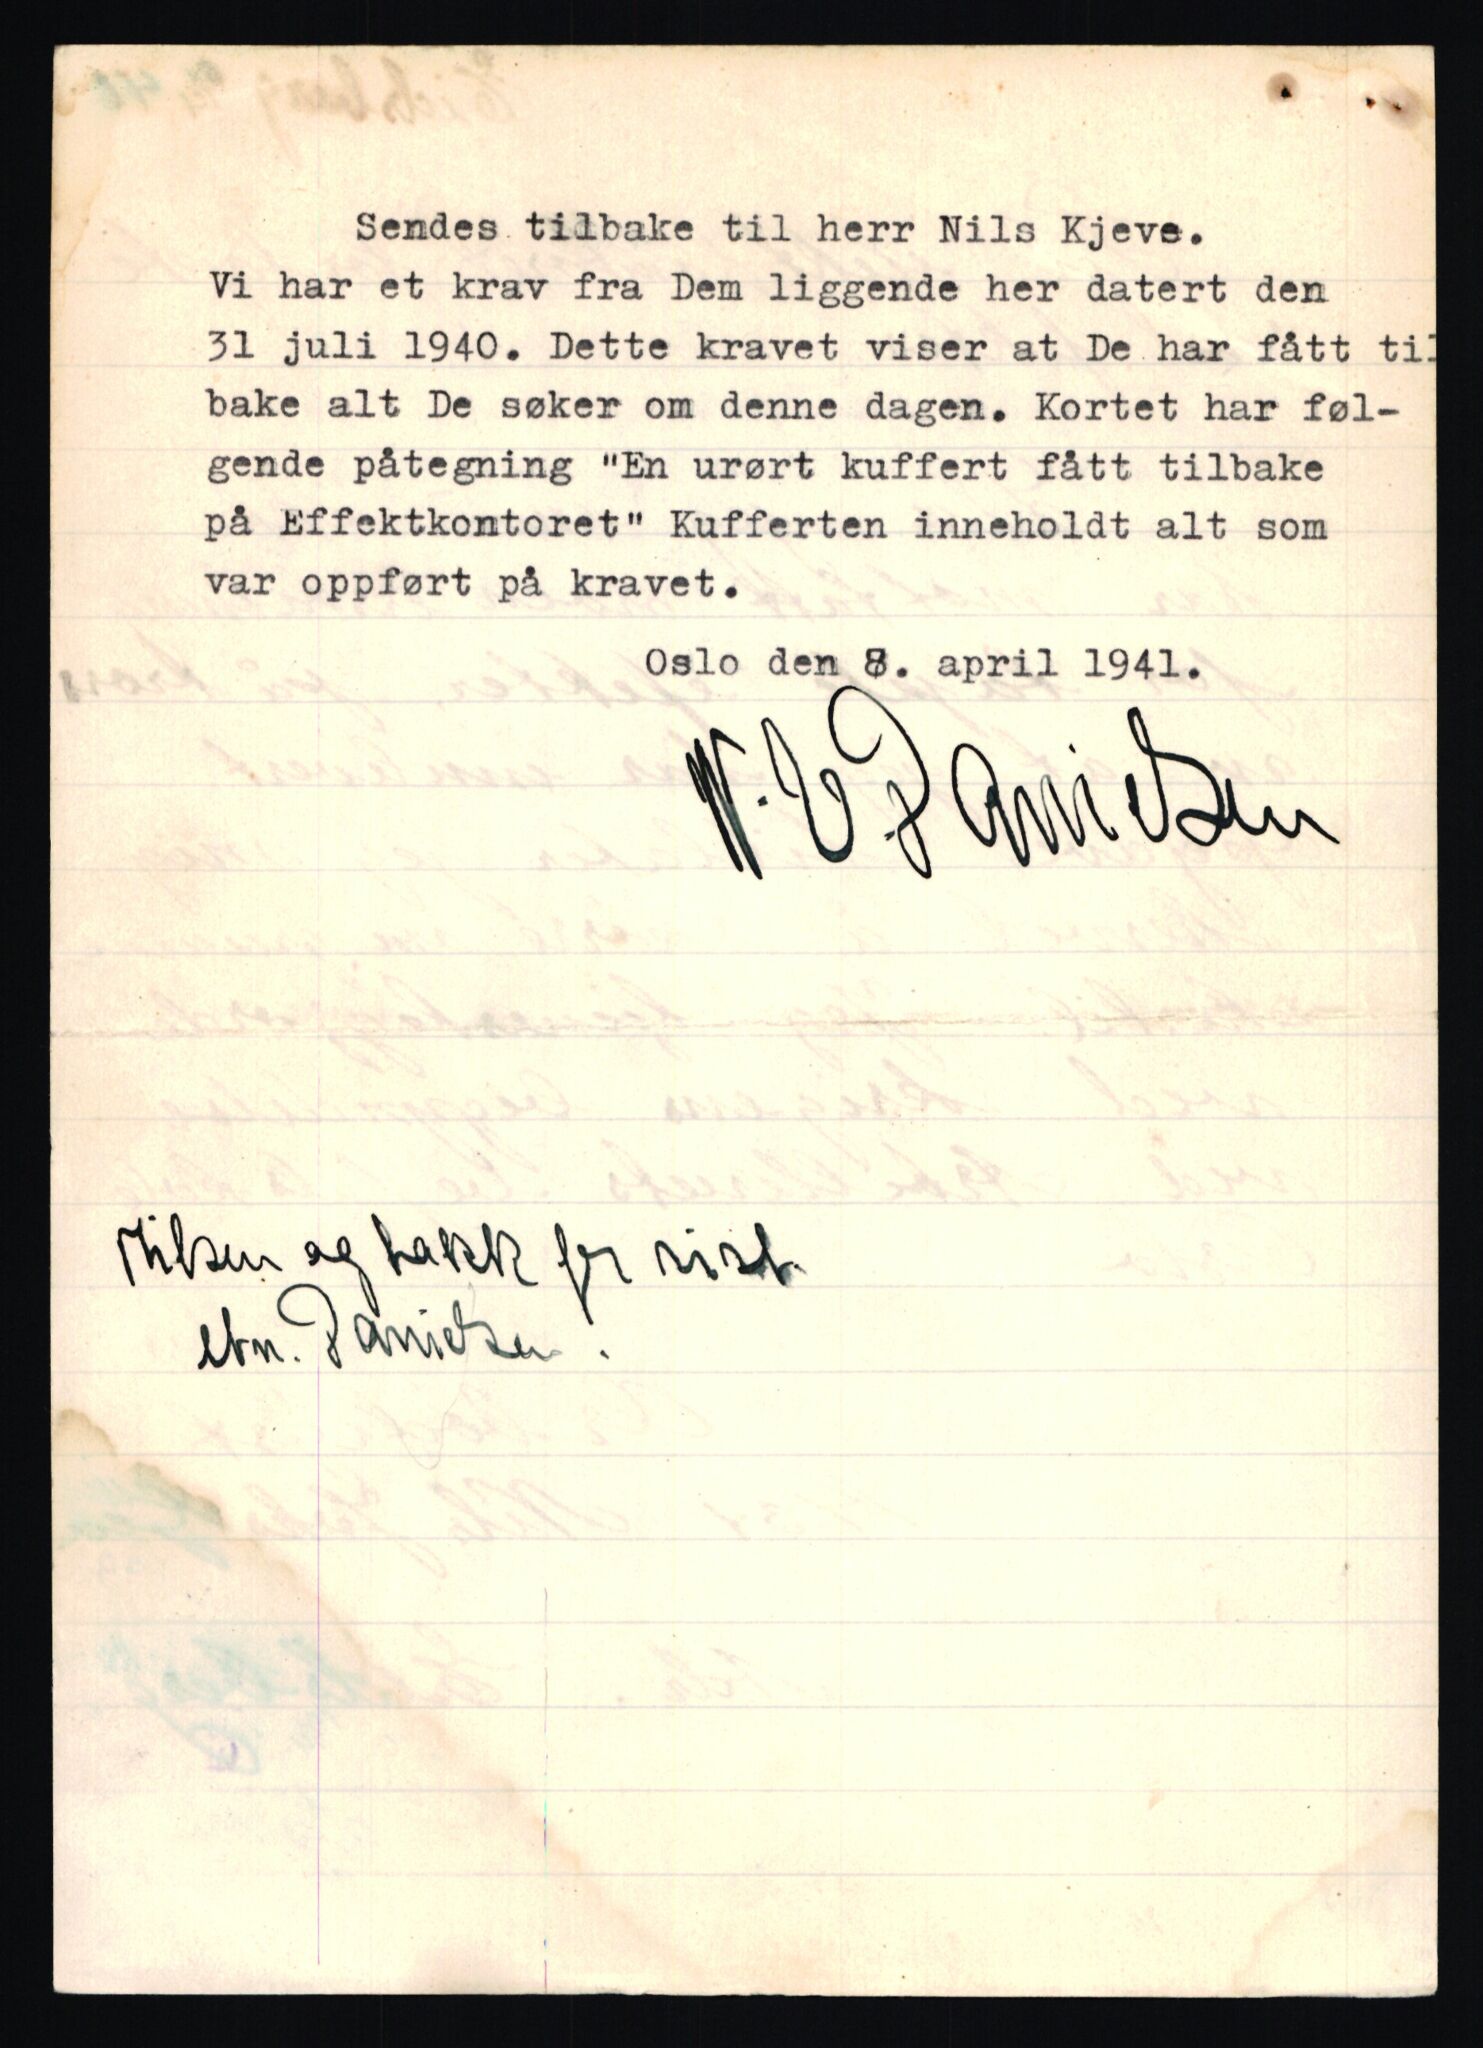 Sendes tilbake til herr Nils Kjeve.
Vi har et krav fra Dem liggende her datert den
31 juli 1940. Dette kravet viser at De har fått til
bake alt De søker om denne dagen. Kortet har føl-
gende påtegning "En urørt kuffert fått tilbake
på Effektkontoret" Kufferten inneholdt alt som
var oppført på kravet.
Oslo den 8. april 1941.
W. E Danielsen
Hilsen og takk for sist.
ebn. Danielsen.